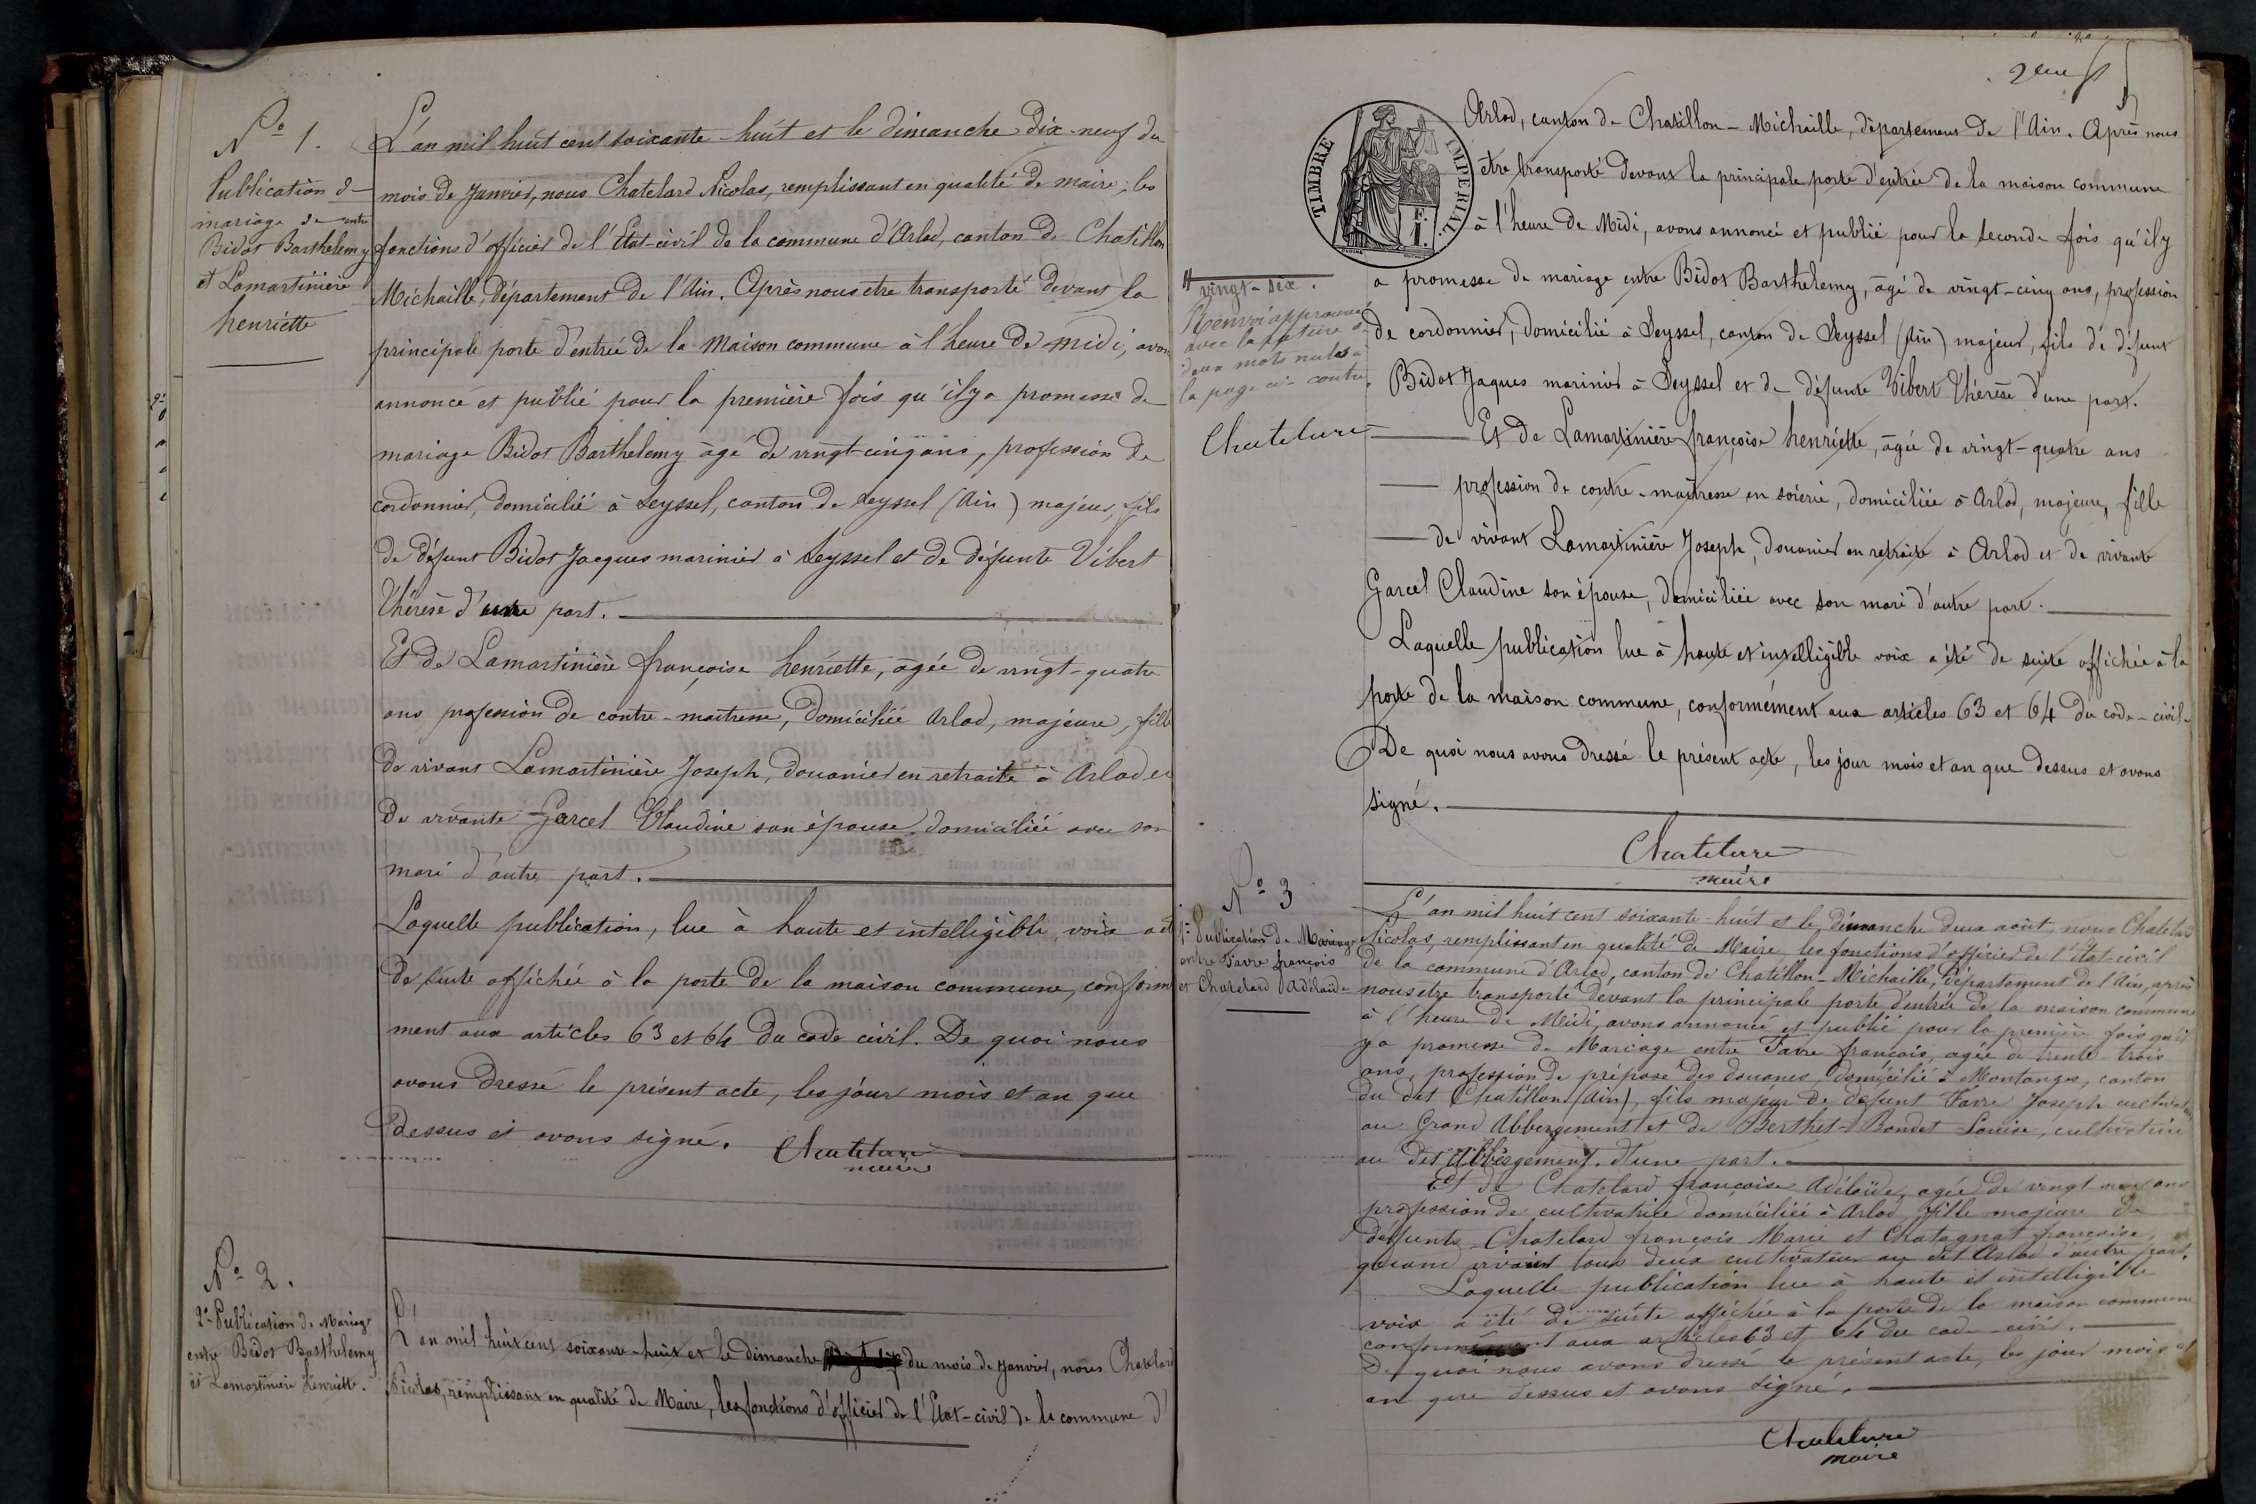 No 1.
Publication de
mariage de entre
Bidot Barthelemy
et Lamartinière
henriette
L'an mil huit cent soixante-huit et le dimanche dix-neuf du
mois de Janvier, nous Chatelard Nicolas, remplissant en qualité de maire, les
fonctions d'officier de l'Etat-civil de la commune d'Arlod, canton de Chatillon
Michaille, Département de l'Ain. Après nous etre transporté devant la
principale porte d'entrée de la Maison commune à l'heure de midi, avons
annoncé et publié pour la première fois qu'il y a promesse de
mariage Bidot Barthelemy âgé de vingt-cinq ans, profession de
cordonnier, domicilié à Seyssel, canton de Seyssel (Ain) majeur, fils
de défunt Bidot Jacques marinier à Seyssel et de défunte Vibert
Thérèse d'une part.
Et de Lamartinière françoise henriette, âgée de vingt-quatre
ans profession de contre-maitresse, domiciliée Arlod, majeure, fille
de vivant Lamartinière Joseph, douanier en retraite à Arlod et
de vivante Garcel Claudine son épouse domiciliée avec son
mari d'autre part.
Laquelle publication, lue à haute et intelligible voix a été
de suite affichée à la porte de la maison commune, conformé
ment aux articles 63 et 64 du code civil. De quoi nous
avons dressé le présent acte, les jour mois et an que
dessus et avons signé. Chatelard
maire
No 2.
2e Publication de Mariage
entre Bidot Barthelemy
et Lamartinière henriette.
L'an mil huit cent soixante-huit et le dimanche du mois de Janvier, nous Chatelard
Nicolas, remplissant en qualité de Maire, les fonctions d'officier de l'Etat-civil de la commune d'
2eme
TIMBRE IMPERIAL
Arlod, canton de Chatillon-Michaille, département de l'Ain. Après nous
être transporté devant la principale porte d'entrée de la maison commune
à l'heure de Midi, avons annoncé et publié pour la seconde fois qu'il y
a promesse de mariage entre Bidot Barthelemy, âgé de vingt-cinq ans, profession
de cordonnier, domicilié à Seyssel, canton de Seyssel (Ain) majeur, fils de défunt
Bidot Jaques marinier à Seyssel et de défunte Vibert Thérèse d'une part.
Et de Lamartinière françoise henriette, âgée de vingt-quatre ans
profession de contre-maitresse en soierie, domiciliée à Arlod, majeure, fille
de vivant Lamartinière Joseph, douanier en retraite à Arlod et de vivante
Garcel Claudine son épouse, domiciliée avec son mari d'autre part.
Laquelle publication lue à haute et intelligible voix a été de suite affichée à la
porte de la maison commune, conformément aux articles 63 et 64 du code-civil.
De quoi nous avons dressé le présent acte, les jour mois et an que dessus et avons
signé.
Chatelard
maire
vingt-six.
Renvoi approuvé
avec la rature de
deux mots nuls à
la page ci-contre.
Chatelard
No 3
1re Publication de Mariage
entre Favre françois
et Chatelard Adélaïde
L'an mil huit cent soixante-huit et le dimanche deux août, nous Chatelard
Nicolas, remplissant en qualité de Maire les fonctions d'officier de l'état-civil
de la commune d'Arlod, canton de Chatillon-Michaille, Département de l'Ain, après
nous etre transporté devant la principale porte d'entrée de la maison commune
à l'heure de Midi, avons annoncé et publié pour la première fois qu'il
y a promesse de Mariage entre Favre françois, agée de trente-trois
ans, profession de préposé des douanes, domicilié à Montanges, canton
du dit Chatillon (Ain), fils majeur de défunt Favre Joseph cultivateur
au Grand Abbergement et de Berthet-Bondet Louise, cultivatrice
au dit Abbergement. d'une part.
Et de Chatelard françoise Adélaïde, agée de vingt ans
profession de cultivatrice domiciliée à Arlod, fille majeure de
défunts Chatelard françois Marie et Chatagnat françoise,
quand vivaient tous deux cultivateur au dit Arlod d'autre part.
Laquelle publication lue à haute et intelligible
voix a été de suite affichée à la porte de la maison commune
conformément aux articles 63 et 64 du code-civil.
De quoi nous avons dressé le présent acte, les jour mois et
an que dessus et avons signé.
Chatelard
maire